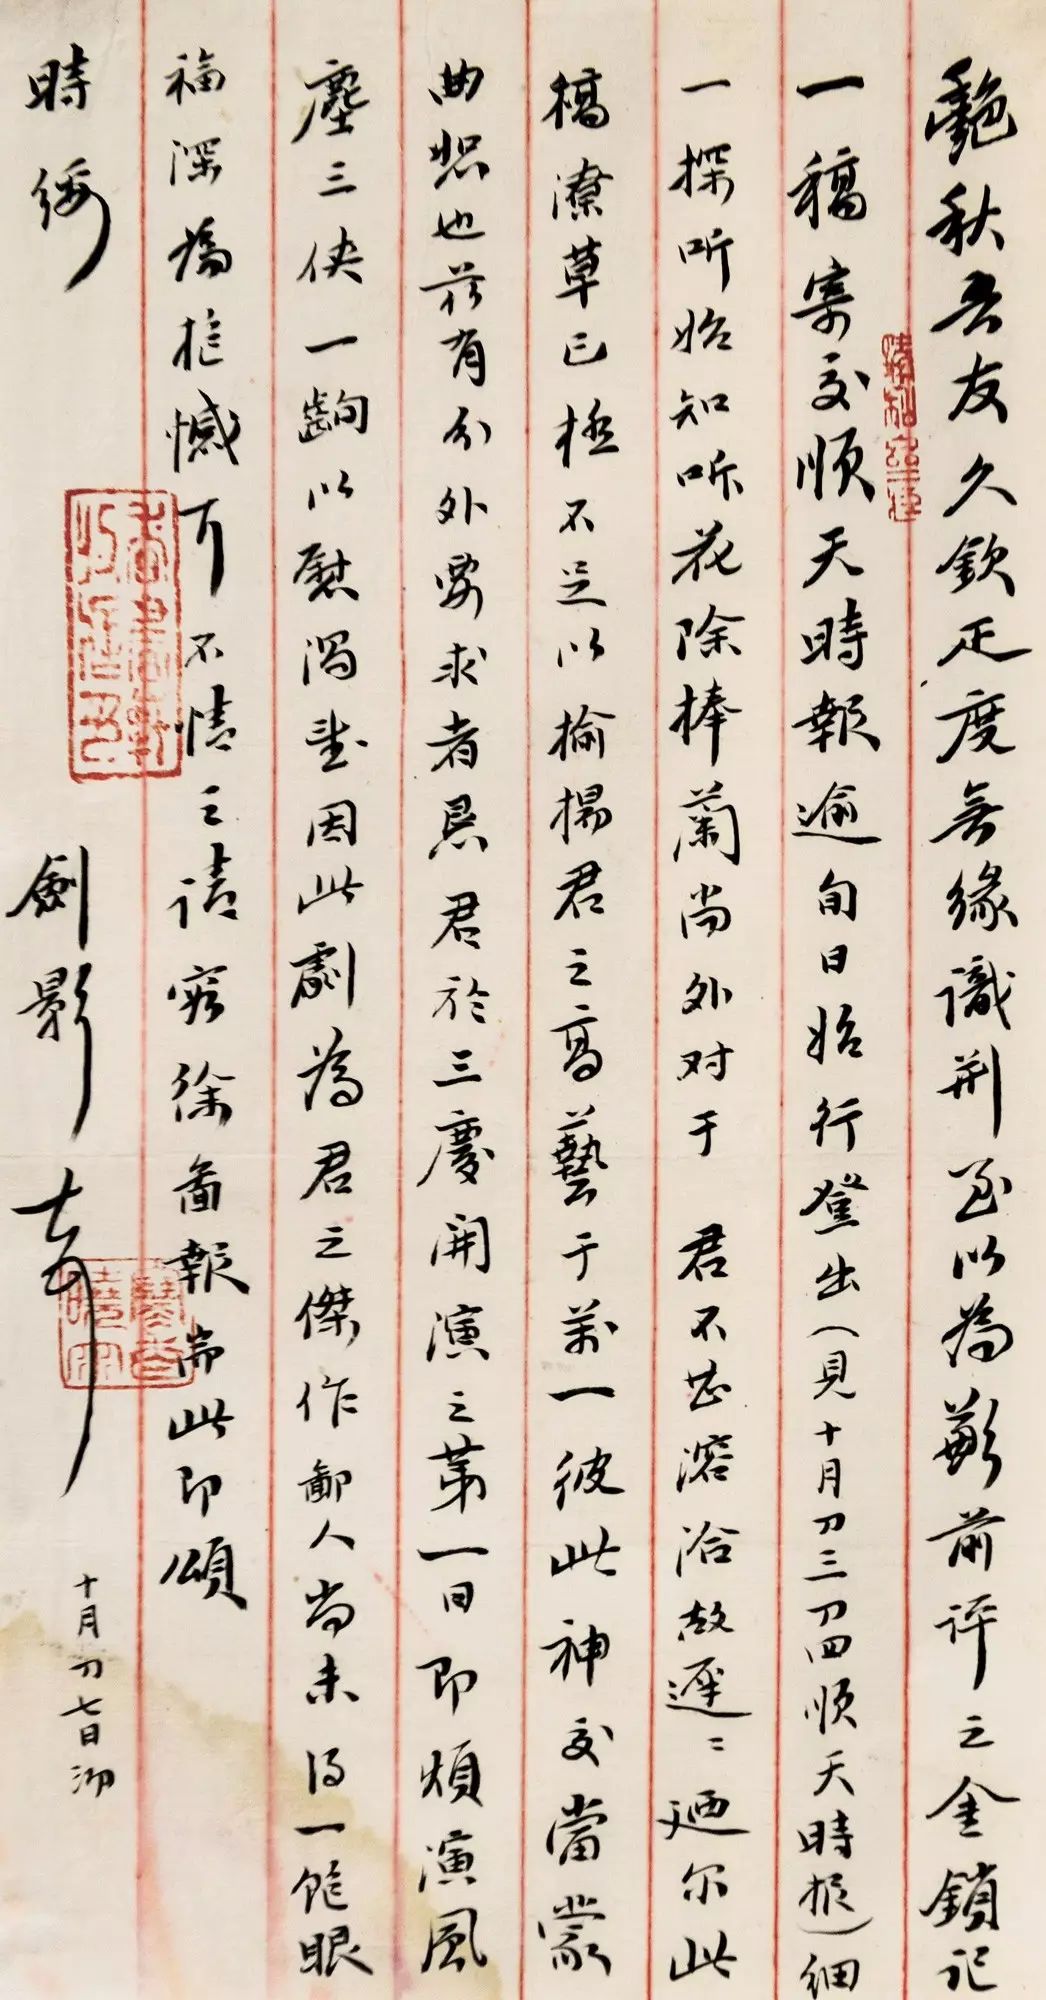 艷秋吾友久欽疋度無緣識荆至以為歉前評之金鎖記
一稿寄交順天時報逾旬日始行登出(見十月刀三刀四順天時报)细
一探听始知听花除捧蘭尚外对于 君不甚溶洽故遲〻廼尔此
稿潦草已極不足以揄揚君之高藝于萬一彼此神交當蒙
曲恕也兹有分外要求者畏君於三慶開演之第一日即煩演風
塵三侠一齣以慰渴望因此劇為君之傑作鄙人尚未得一飽眼
福深為悵憾耳不情之請容徐啚報耑此即頌
時綏
劍影
十月刀七日